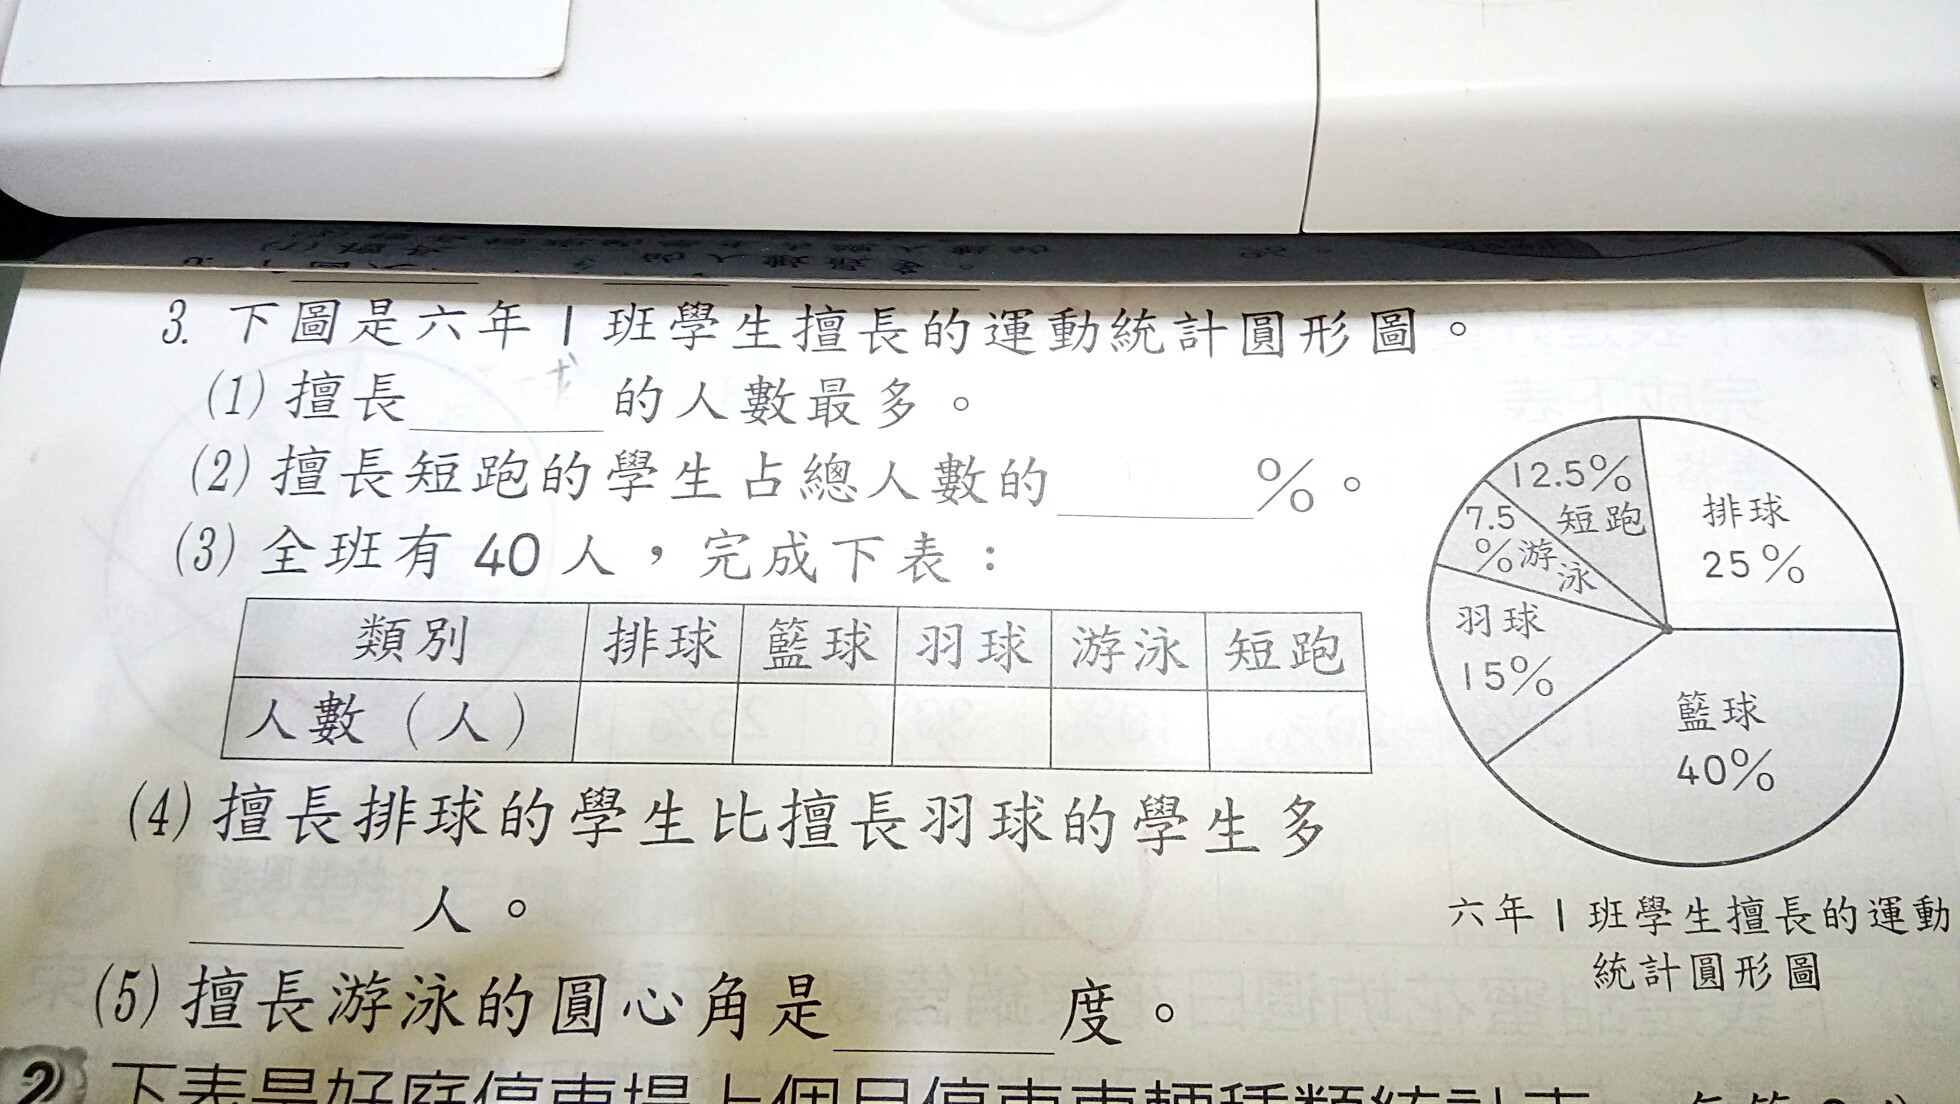 3. 下圖是六年1班學生擅長的運動統計圓形圖。
(1) 擅長的人數最多。
(2) 擅長短跑的學生占總人數的%。
(3) 全班有40人，完成下表：
類別 排球 籃球 羽球 游泳 短跑
人數（人）
(4) 擅長排球的學生比擅長羽球的學生多
人。
(5) 擅長游泳的圓心角是度。
12.5%
短跑
排球
25%
7.5
%游
泳
羽球
15%
籃球
40%
六年1班學生擅長的運動
統計圓形圖
2 下表是好庭停車場上個月停車車輛種類統計表